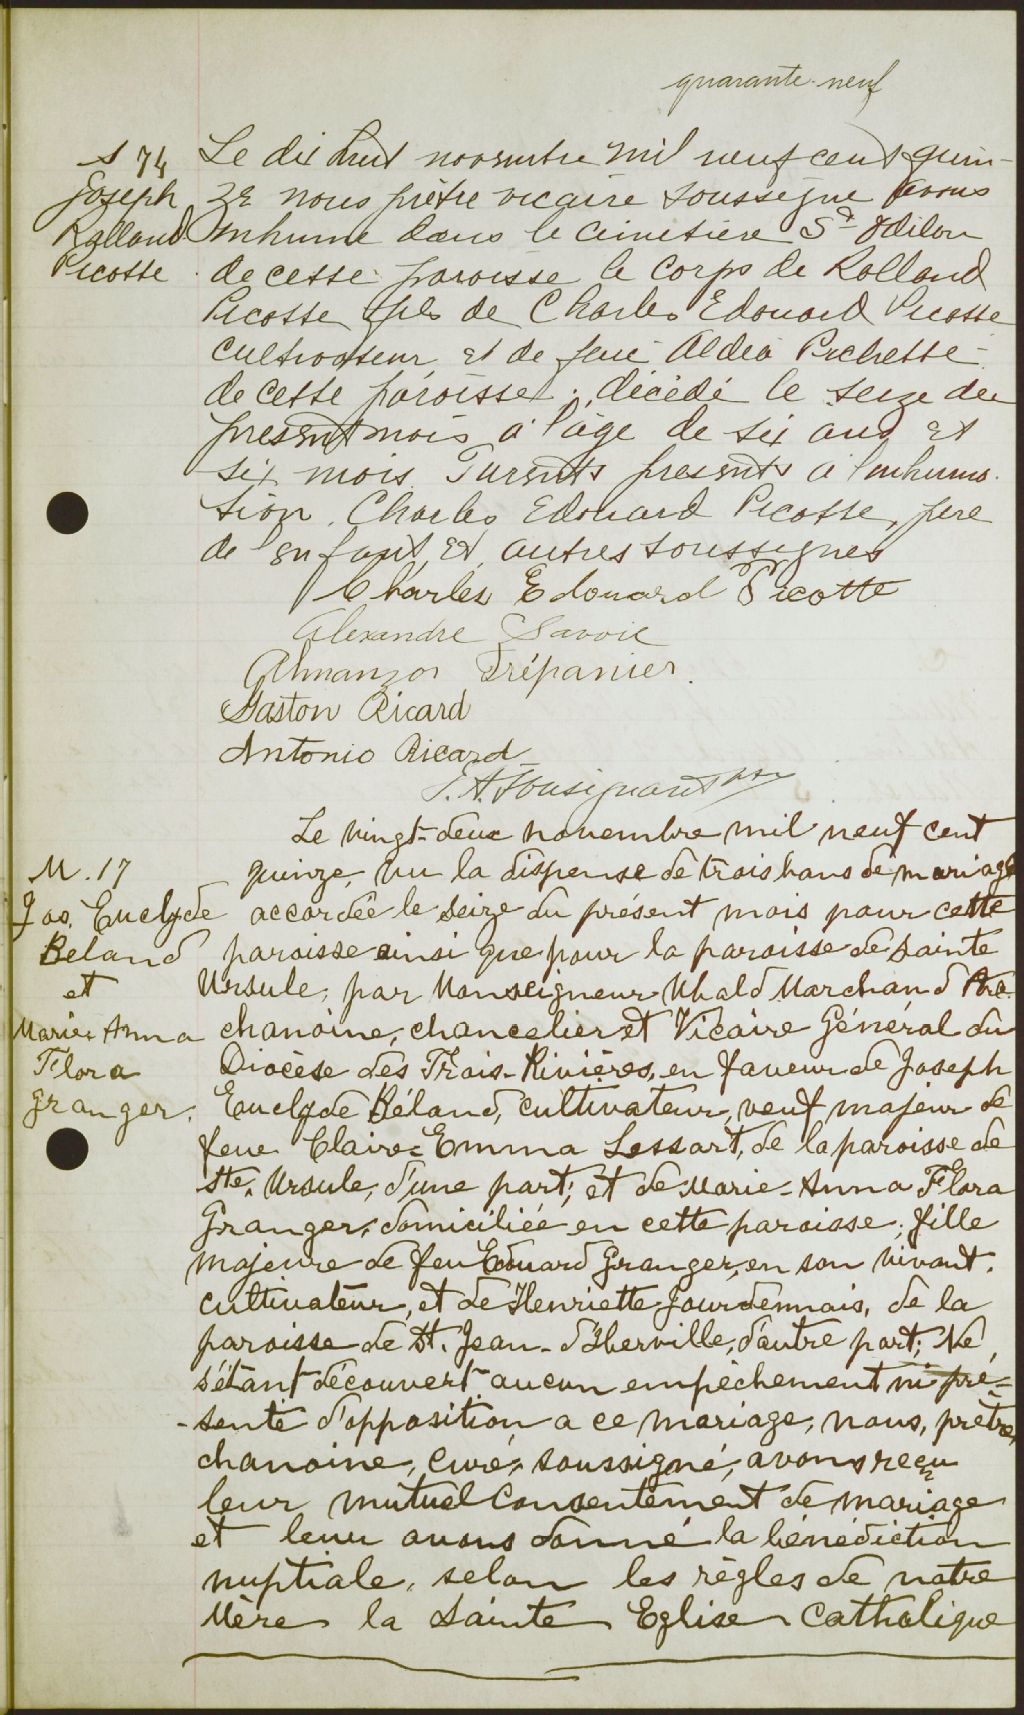 quarante-neuf
S 74
Joseph
Rolland
Picotte
Le dix huit novembre mil neuf cent quin-
ze nous prêtre vicaire soussigné avons
inhumé dans le cimetière St Odilon
de cette paroisse le corps de Rolland
Picotte fils de Charles Edouard Picotte
cultivateur et de feue Aldea Pichette
de cette paroisse, décédé le seize du
présent mois à l'âge de six ans et
six mois. Furent présents à l'inhuma-
tion, Charles Edouard Picotte, père
de l'enfant, et autres soussignés
Charles Edouard Picotte
Alexandre Savoie
Almanzor Trépanier.
Gaston Ricard
Antonio Ricard
Ptre
M. 17
Jos. Euclyde
Beland
et
Marie-Anna
Flora
Granger.
Le vingt-deux novembre mil neuf cent
quinze, vu la dispense de trois bans de mariage
accordée le seize du présent mois pour cette
paroisse ainsi que pour la paroisse de Sainte
Ursule, par Monseigneur Ubald Marchand Ptre
chanoine, chancelier et Vicaire Général du
Diocèse des Trois-Rivières, en faveur de Joseph
Euclyde Béland, cultivateur, veuf majeur de
feue Claire-Emma Lessart, de la paroisse de
Ste. Ursule, d'une part; et de Marie-Anna Flora
Granger, domiciliée en cette paroisse, fille
majeure de feu Edouard Granger, en son vivant
cultivateur, et de Henriette Jourdennais, de la
paroisse de St. Jean-d'Iberville, d'autre part; Ne
s'étant découvert aucun empêchement ni pré-
-senté d'opposition a ce mariage, nous, prêtre,
chanoine, curé, soussigné, avons reçu
leur mutuel consentement de mariage
et leur avons donné la bénédiction
nuptiale, selon les règles de notre
Mère la Sainte Eglise Catholique